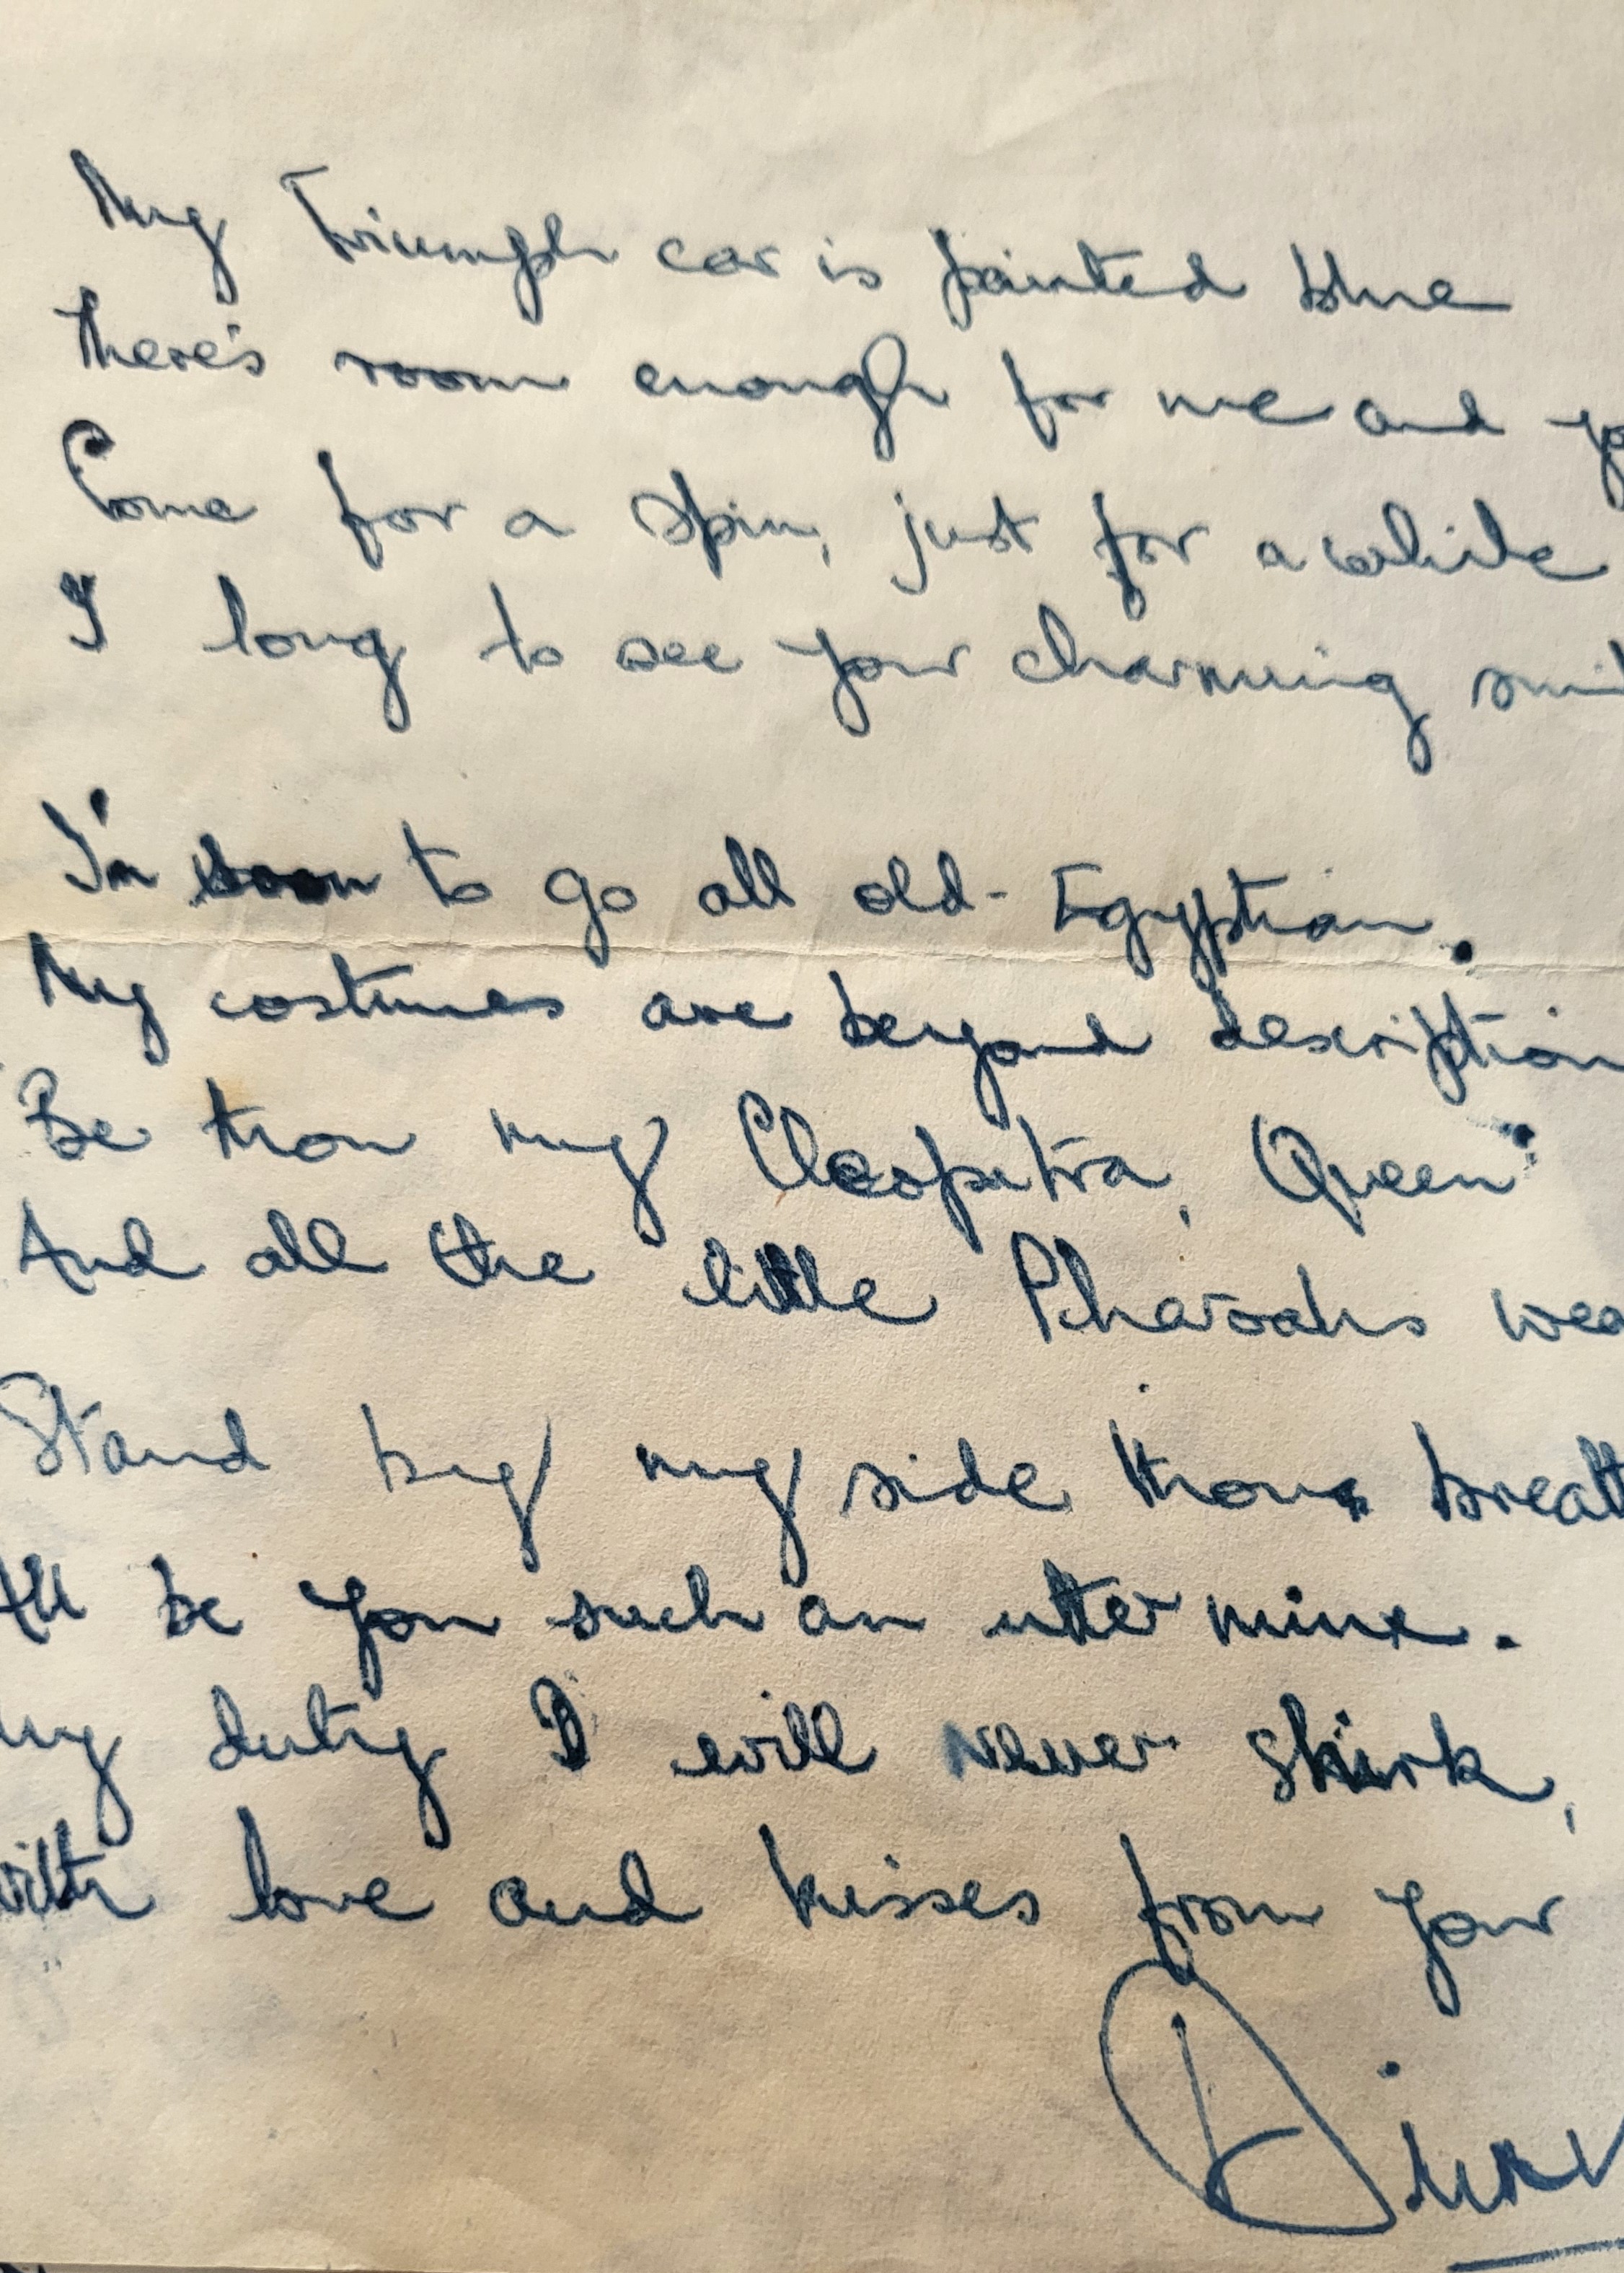 My Triumph car is painted blue
There's room enough for me and yo
Come for a spin, just for a while
I long to see your charming smil
I'm soon to go all old-Egyptian.
My costumes are beyond description
Be thou my Cleopatra, Queen
And all the little Pharoahs wea
Stand by my side thou breath
be you such an utter mine.
my duty I will never shirk,
with love and kisses from your